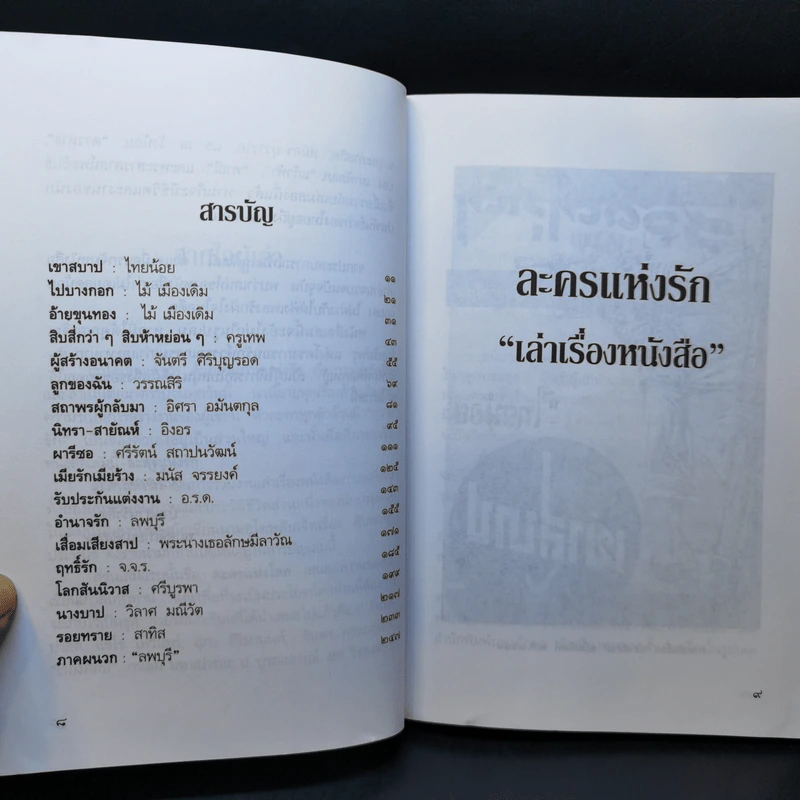 สารบัญ
เขาสบาป : ไทยน้อย ๑๑
ไปบางกอก : ไม้ เมืองเดิม ๒๑
อ้ายขุนทอง : ไม้ เมืองเดิม ๓๑
สิบสี่กว่า ๆ สิบห้าหย่อน ๆ : ครูเทพ ๔๓
ผู้สร้างอนาคต : จันตรี ศิริบุญรอด ๕๕
ลูกของฉัน : วรรณสิริ ๖๙
สถาพรผู้กลับมา : อิศรา อมันตกุล ๘๑
นิทรา-สายัณห์ : อิงอร ๙๕
ผารีซอ : ศรีรัตน์ สถาปนวัฒน์ ๑๑๑
เมียรักเมียร้าง : มนัส จรรยงค์ ๑๒๕
รับประกันแต่งงาน : อ.ร.ด. ๑๔๓
อำนาจรัก : ลพบุรี ๑๕๕
เสื่อมเสียงสาป : พระนางเธอลักษมีลาวัณ ๑๗๑
ฤทธิ์รัก : จ.จ.ร. ๑๘๕
โลกสันนิวาส : ศรีบูรพา ๑๙๙
นางบาป : วิลาศ มณีวัต ๒๑๗
รอยทราย : สาทิส ๒๓๓
ภาคผนวก : “ลพบุรี” ๒๔๗
๘
ละครแห่งรัก
“เล่าเรื่องหนังสือ”
๙